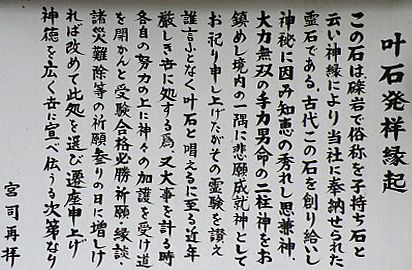 叶石発祥縁起
この石は礫岩で俗称を子持ち石と
云い神縁により当社に奉納せられた
霊石である。古代この石を創り給いし
神秘に因み知恵の秀れし思兼神、
大力無双の手力男命の二柱神をお
鎮めし境内の一隅に悲願成就神として
お祀り申し上げたがその霊験を讃え
誰言ふとなく叶石と唱えるに至る近年
厳しき世に処する為、又大事を計る時
各自の努力の上に神々の加護を受け道
を開かんと受験合格必勝祈願、縁談、
諸災難除等の祈願参りの日に増しけ
れば改めて此処を選び遷座申上げ
神徳を広く世に宣べ伝うる次第なり
宮司再拝